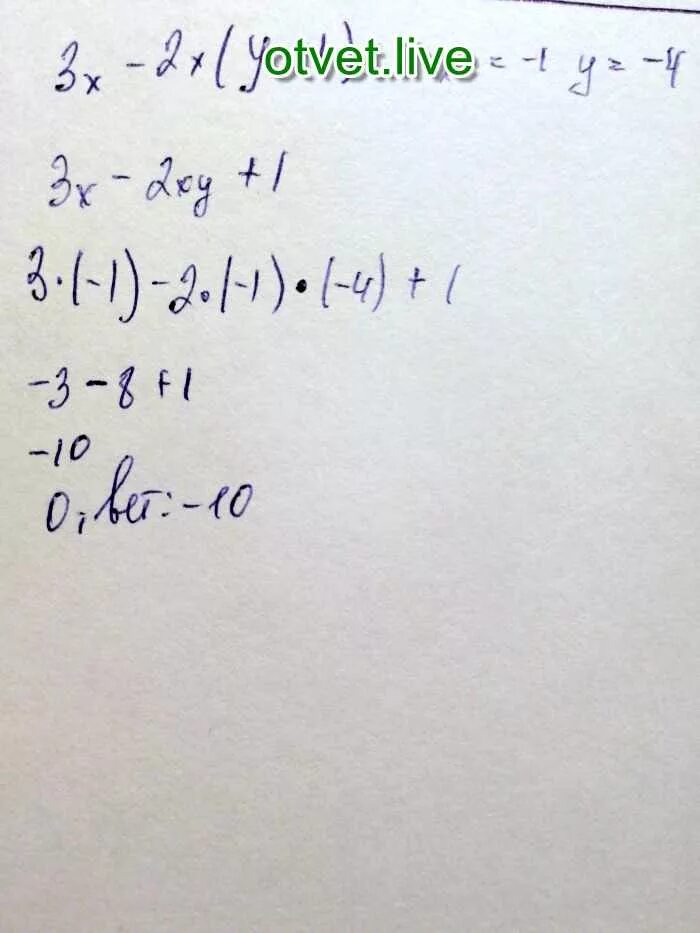 3x - 2x(y otvet.live = -1 y = -4
3x - 2xy + 1
3·(-1) - 2·(-1)·(-4) + 1
-3 - 8 + 1
-10
Ответ: -10